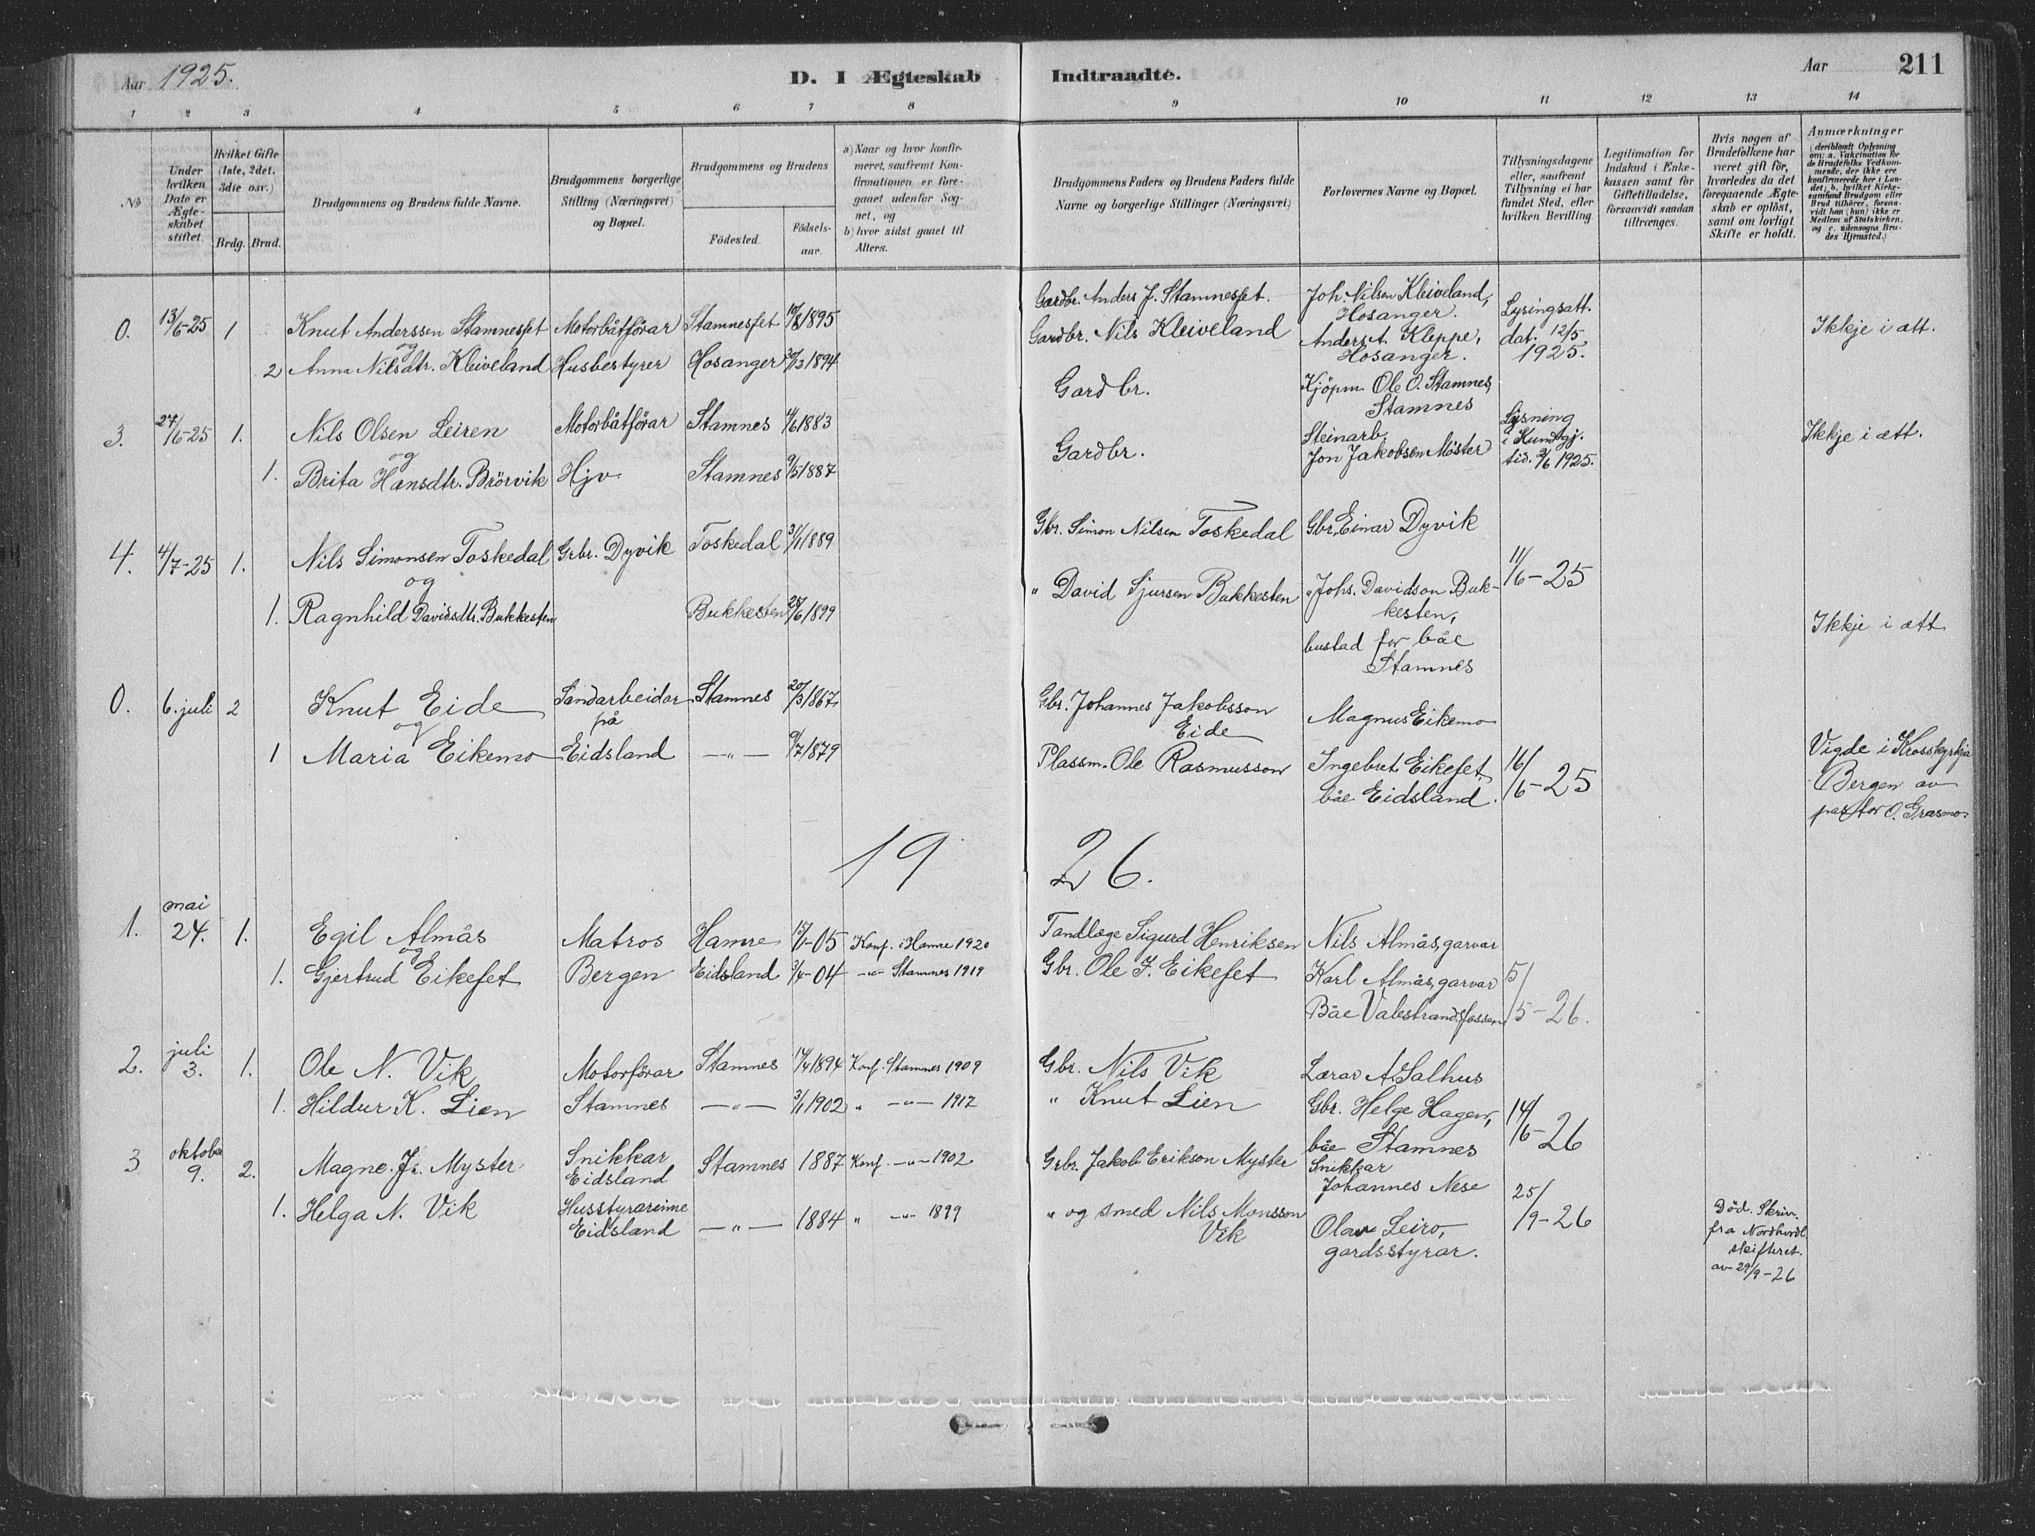 Aar 1925.
D. I Ægteskab
Indtraadte.
Aar
211
1 2 3 4 5 6 7 8 9 10 11 12 13 14
No
Under hvilken Dato er Ægteskabet stiftet.
Hvilket Gifte (1ste, 2det, 3die osv.)
Brdg. Brud.
Brudgommens og Brudens fulde Navne.
Brudgommens borgerlige Stilling (Næringsvei) og Bopæl.
Brudgommens og Brudens
Fødested.
Fødsels-aar.
a) Naar og hvor konfirmeret, saafremt Konfirmationen er foregaaet udenfor Sognet, og
b) hvor sidst gaaet til Alters.
Brudgommens Faders og Brudens Faders fulde Navne og borgerlige Stillinger (Næringsvei)
Forlovernes Navne og Bopæl.
Tillysningsdagene eller, saafremt Tillysning ei har fundet Sted, efter hvilken Bevilling.
Legitimation for Indskud i Enkekassen samt for Giftetilladelse, forsaavidt saadan tiltrænges.
Hvis nogen af Brudefolkene har været gift før, hvorledes da det foregaaende Ægteskab er opløst, samt om lovligt Skifte er holdt.
Anmærkninger
(deriblandt Oplysning om: a. Vakcination for de Brudefolks Vedkommende, der ikke ere konfirmerede her i Landet; b. hvilket Kirkesamfund Brudgom eller Brud tilhører, forsaavidt han (hun) ikke er Medlem af Statskirken, og c. udensogns Brudes Hjemsted.)
0. 13/6-25 1 Knut Anderssen Stamnesfet Motorbåtförar Stamnesfet 10/8 1895
og
2 Anna Nilsdtr. Kleiveland Husbestyrer Hosanger 30/12 1894
Gardbr. Anders J. Stamnesfet.
Gardbr. Nils Kleiveland
Joh. Nilsen Kleiveland,
Hosanger.
Anders Kleppe,
Hosanger.
Lysingsatt.
dat. 12/5
1925.
Ikkje i ætt.
3. 27/6-25 1. Nils Olsen Leiren Motorbåtförar Stamnes 4/6 1883
og
1. Brita Hansdtr. Brörvik Hjv. Stamnes 9/5 1887
Gardbr.
Gardbr.
Kjöpm. Ole O. Stamnes,
Stamnes
Steinarb.
Jon Jakobsen Möster
Lysning
i Kundgj.
tid. 2/6 1925.
Ikkje i ætt.
4. 4/7-25 1. Nils Simonsen Toskedal Grbr. Dyvik Toskedal 31/1 1889
og
1. Ragnhild Davidsdtr. Bukkesten Bukkesten 28/6 1899
Gbr. Simon Nilsen Toskedal
" David Sjursen Bukkesten
Gbr. Einar Dyvik
" Johs. Davidson Buk-
kesten,
bustad for båe
Stamnes
11/6-25
Ikkje i ætt
0. 6. juli 2 Knut Eide Sandarbeidar Stamnes 20/3 1867
og på
1 Maria Eikemo Eidsland —"— 9/7 1879
Gbr. Johannes Jakobsson
Eide
Plassm. Ole Rasmusson
Magnus Eikemo
Ingebret Eikefet,
båe Eidsland.
16/6-25
Vigde i Krosskyrkja
Bergen av
pastor O. Grasmo.
19 26.
1. mai 24. 1. Egil Almås Matros Hamre 15/1-05 Konf. i Hamre 1920
og
1. Gjertrud Eikefet Bergen Eidsland 3/4-04 —"— Stamnes 1919
Tandlæge Sigurd Henriksen
Gbr. Ole J. Eikefet
Nils Almås, garvar
Karl Almås, garvar
Båe Valestrandsfossen
5/5-26.
2. juli 3. 1. Ole N. Vik Motorförar Stamnes 17/4 1894 Konf. Stamnes 1909
1. Hildur K. Lien Stamnes —"— 3/1 1902 " —"— 1917
Gbr. Nils Vik
" Knut Lien
Lærar A. Salhus
Gbr. Helge Hagen,
båe Stamnes
14/6-26
3 oktober 9. 2. Magne Jr. Myster Snikkar Eidsland Stamnes 1887 Konf. —"— 1902
1. Helga N. Vik Husstyrarinne Eidsland —"— 1884 " —"— 1899
Grbr. Jakob Erikson Myster
" og smed Nils Monsson
Vik
Snikkar
Johannes Nese
Olav Leiro,
gardsstyrar.
25/9-26
Död. Skriv.
fra Nordhordl.
skifteret.
av 29/9-26